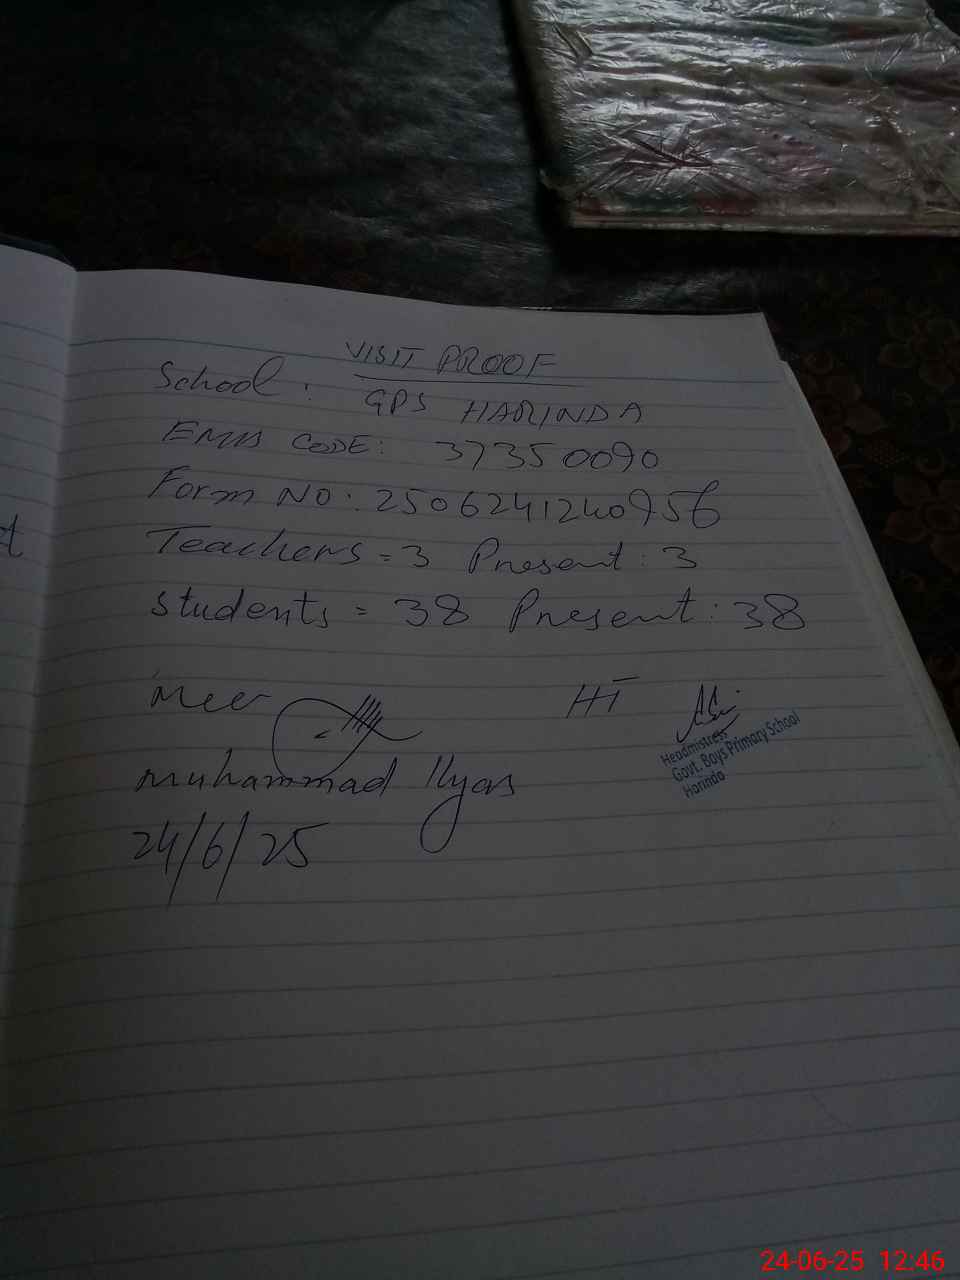 VISIT PROOF
School: GPS HARINDA
EMIS CODE: 37350090
Form NO: 2506241240956
Teachers = 3 Present: 3
Students = 38 Present: 38
Mee
HT
Muhammad Ilyas
24/6/25
Headmistress
Govt. Boys Primary School
Harinda
24-06-25 12:46